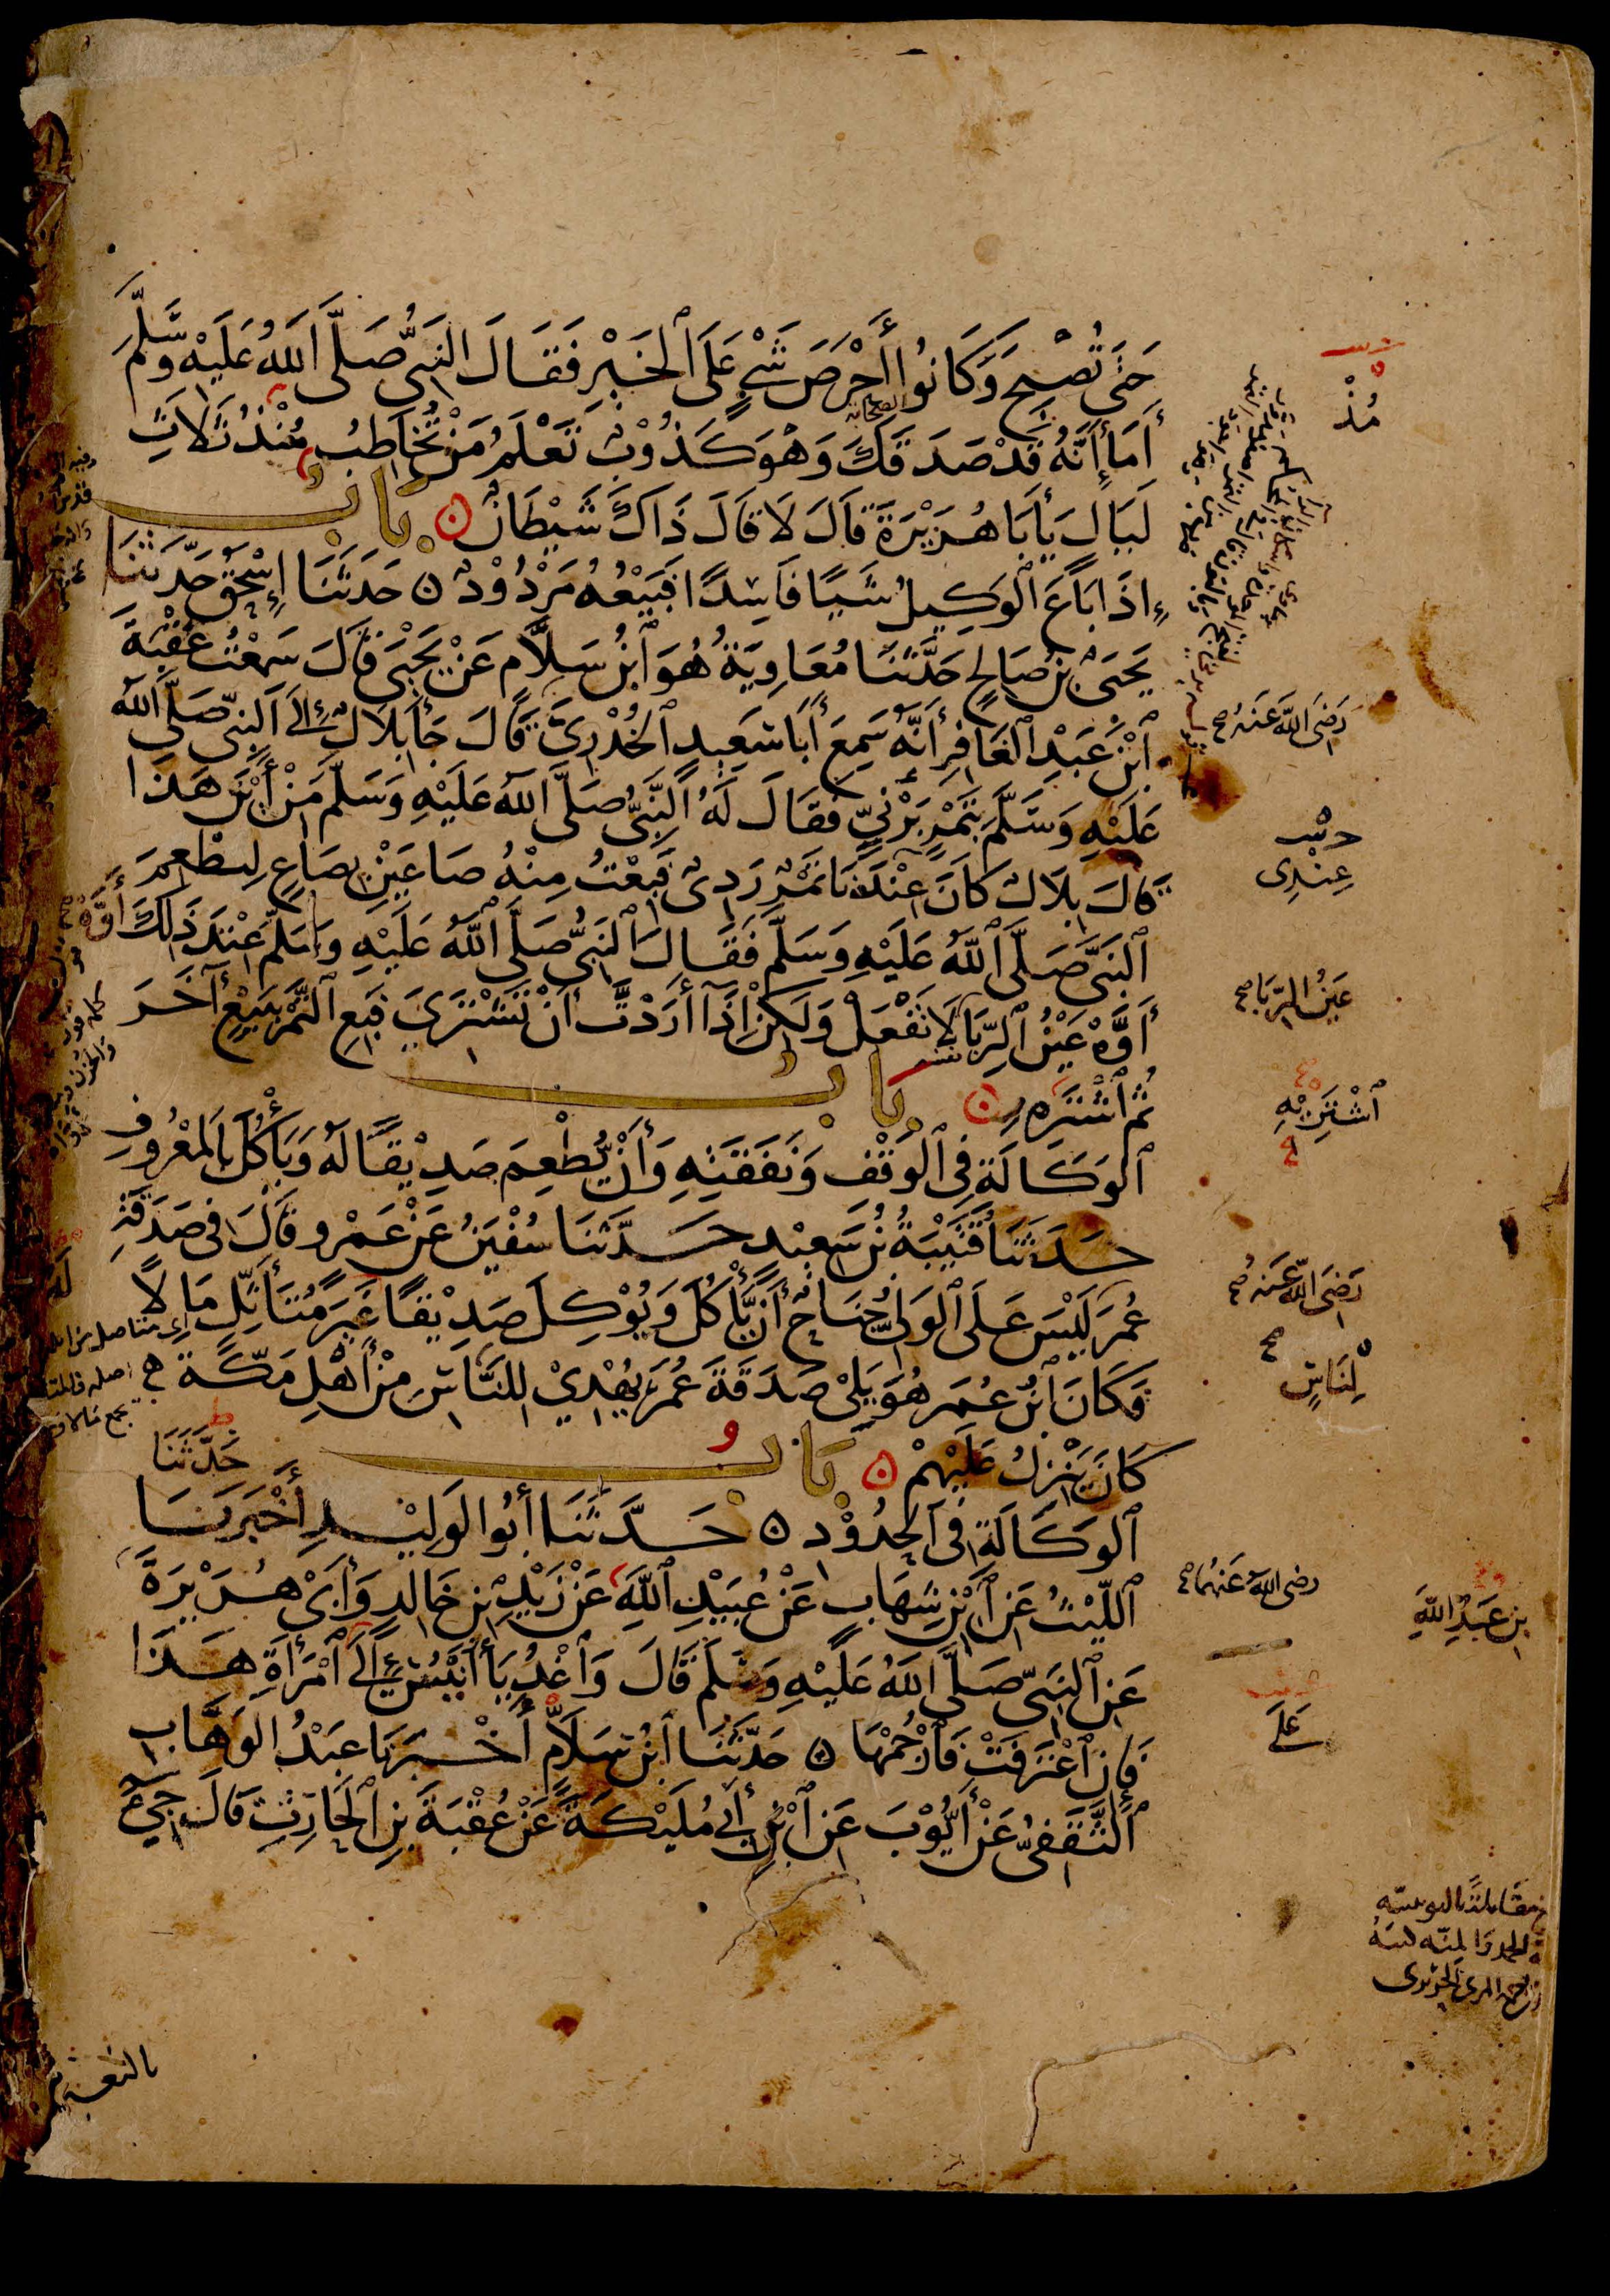 حَتَّى تُصْبِحَ وَكَانُوا أَحْرَصَ شَيْءٍ عَلَى ٱلْخَيْرِ فَقَالَ النَّبِيُّ صَلَّى اللَّهُ عَلَيْهِ وَسَلَّمَ
أَمَا إِنَّهُ قَدْ صَدَقَكَ وَهْوَ كَذُوْبٌ تَعْلَمُ مَنْ تُخَاطِبُ مُنْذُ ثَلَاثِ
مُذْ
لَيَالٍ يَا أَبَا هُرَيْرَةَ قَالَ لَا قَالَ ذَاكَ شَيْطَانٌ ۞ بَابٌ
إِذَا بَاعَ ٱلْوَكِيلُ شَيْئًا فَاسِدًا فَبَيْعُهُ مَرْدُوْدٌ ۞ حَدَّثَنَا إِسْحٰقُ حَدَّثَنَا
يَحْيَى بْنُ صَالِحٍ حَدَّثَنَا مُعَاوِيَةُ هُوَ ٱبْنُ سَلَّامٍ عَنْ يَحْيَى قَالَ سَمِعْتُ عُقْبَةَ
ٱبْنَ عَبْدِ ٱلْغَافِرِ أَنَّهُ سَمِعَ أَبَا سَعِيدٍ ٱلْخُدْرِيَّ قَالَ جَاءَ بِلَالٌ إِلَى النَّبِيِّ صَلَّى اللَّهُ
رَضِيَ اللَّهُ عَنْهُ صح
عَلَيْهِ وَسَلَّمَ بِتَمْرٍ بَرْنِيٍّ فَقَالَ لَهُ النَّبِيُّ صَلَّى اللَّهُ عَلَيْهِ وَسَلَّمَ مِنْ أَيْنَ هَذَا
قَالَ بِلَالٌ كَانَ عِنْدَنَا تَمْرٌ رَدِيٌّ فَبِعْتُ مِنْهُ صَاعَيْنِ بِصَاعٍ لِنُطْعِمَ
عِنْدِي
ٱلنَّبِيَّ صَلَّى ٱللَّهُ عَلَيْهِ وَسَلَّمَ فَقَالَ النَّبِيُّ صَلَّى ٱللَّهُ عَلَيْهِ وَسَلَّمَ عِنْدَ ذَلِكَ أَوَّهْ
أَوَّهْ عَيْنُ ٱلرِّبَا لَا تَفْعَلْ وَلَكِنْ إِذَا أَرَدْتَ أَنْ تَشْتَرِيَ فَبِعِ ٱلتَّمْرَ بِبَيْعٍ آخَرَ
عَيْنُ الرِّبَا صح
ثُمَّ ٱشْتَرِهِ ۞ بَابُ
ٱشْتَرِ بِهِ
ٱلْوَكَالَةِ فِي ٱلْوَقْفِ وَنَفَقَتِهِ وَأَنْ يُطْعِمَ صَدِيْقًا لَهُ وَيَأْكُلَ بِالْمَعْرُوفِ
حَدَّثَنَا قُتَيْبَةُ بْنُ سَعِيْدٍ حَدَّثَنَا سُفْيٰنُ عَنْ عَمْرٍو قَالَ فِي صَدَقَةِ
عُمَرَ لَيْسَ عَلَى ٱلْوَلِيِّ جُنَاحٌ أَنْ يَأْكُلَ وَيُوْكِلَ صَدِيْقًا غَيْرَ مُتَأَثِّلٍ مَالًا
رَضِيَ اللَّهُ عَنْهُ صح
فَكَانَ ٱبْنُ عُمَرَ هُوَ يَلِيْ صَدَقَةَ عُمَرَ يُهْدِيْ لِلنَّاسِ مِنْ أَهْلِ مَكَّةَ
لِنَاسٍ
كَانَ يَنْزِلُ عَلَيْهِمْ ۞ بَابُ
حَدَّثَنَا
ٱلْوَكَالَةِ فِي ٱلْحُدُوْدِ ۞ حَدَّثَنَا أَبُو الوَلِيْدِ أَخْبَرَنَا
ٱللَّيْثُ عَنِ ٱبْنِ شِهَابٍ عَنْ عُبَيْدِ ٱللَّهِ عَنْ زَيْدِ بْنِ خَالِدٍ وَأَبِيْ هُرَيْرَةَ
رضي اللهُ عَنْهُمَا صح
بْنِ عَبْدِ اللَّهِ
عَنِ ٱلنَّبِيِّ صَلَّى اللَّهُ عَلَيْهِ وَسَلَّمَ قَالَ وَٱغْدُ يَا أُنَيْسُ إِلَى ٱمْرَأَةِ هَذَا
عَلَى
فَإِنِ ٱعْتَرَفَتْ فَارْجُمْهَا ۞ حَدَّثَنَا ٱبْنُ سَلَامٍ أَخْبَرَنَا عَبْدُ الوَهَّابِ
ٱلثَّقَفِيُّ عَنْ أَيُّوْبَ عَنِ ٱبْنِ أَبِي مُلَيْكَةَ عَنْ عُقْبَةَ بْنِ ٱلْحَارِثِ قَالَ جِيْءَ
بالنعيمان